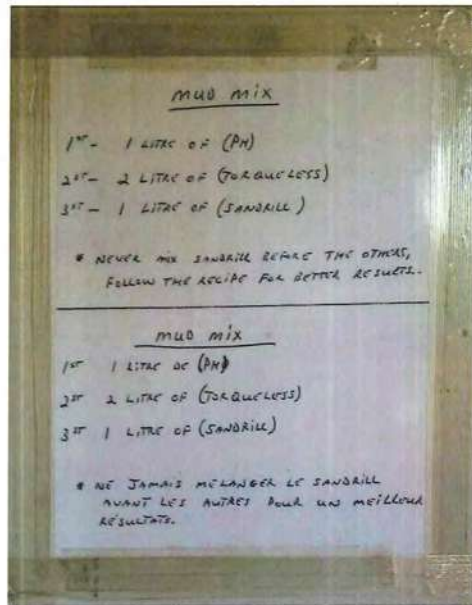 MUD MIX
1ST- 1 LITRE OF (PH)
2ST- 2 LITRE OF (TORQUELESS)
3ST- 1 LITRE OF (SANDRILL)
* NEVER MIX SANDRILL BEFORE THE OTHERS,
FOLLOW THE RECIPE FOR BETTER RESULTS..
MUD MIX
1ST 1 LITRE DE (PH)
2ST 2 LITRE OF (TORQUELESS)
3ST 1 LITRE OF (SANDRILL)
* NE JAMAIS MELANGER LE SANDRILL
AVANT LES AUTRES POUR UN MEILLEUR
RÉSULTATS.